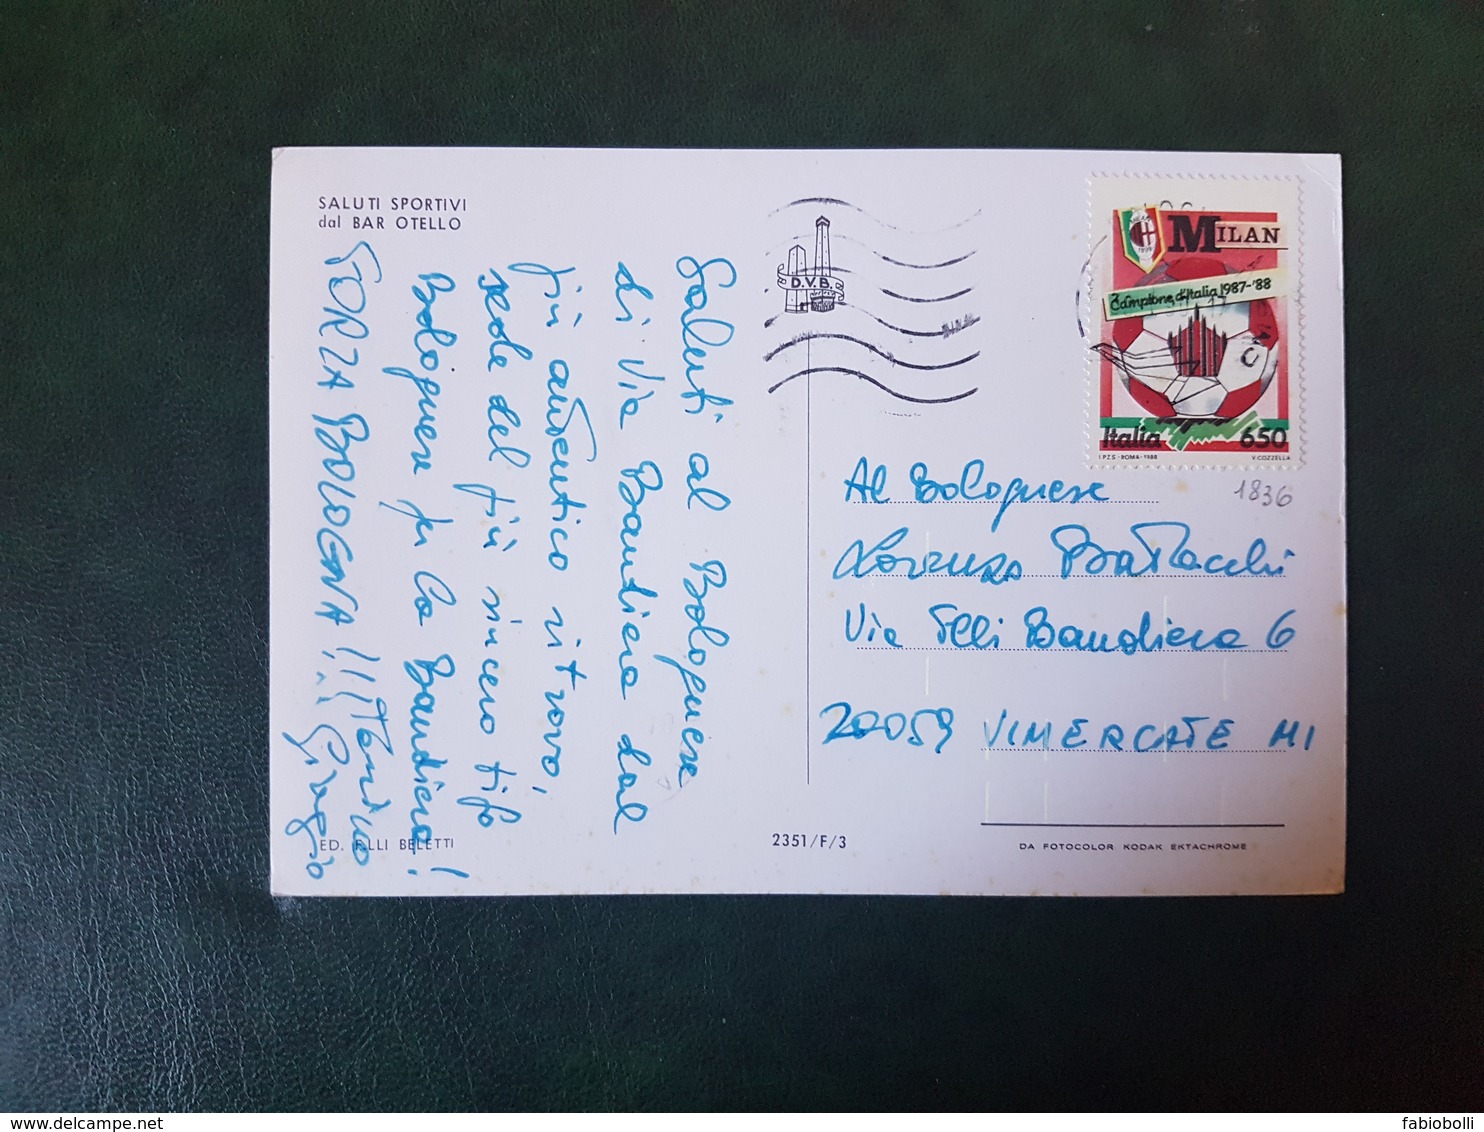 SALUTI SPORTIVI
dal BAR OTELLO
Saluti al Bolognese
di Via Bandiera dal
più autentico ritrovo,
sede del più sincero tifo
Bolognese per la Bandiera!
FORZA BOLOGNA!!!
Giorgio
ED. F.LLI BELETTI
2351/F/3
D.V.B.
MILAN
Campione d'Italia 1987-'88
Italia 650
I.P.Z.S. - ROMA - 1988 V. COZZELLA
1836
Al Bolognese
Lorenzo Battacchi
Via F.lli Bandiera 6
20059 VIMERCATE MI
DA FOTOCOLOR KODAK EKTACHROME
fabiobolli